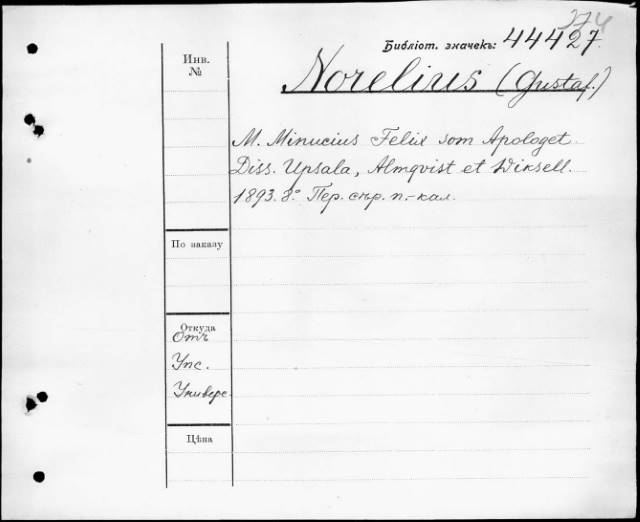 274
Библіот. значекъ: 44427.
Инв.
№
Norelius (Gustaf.)
M. Minucius Felix som Apologet.
Diss. Upsala, Almqvist et Wiksell.
1893. 8º
По заказу
Откуда
Отъ
Упс.
Универс.
Цѣна